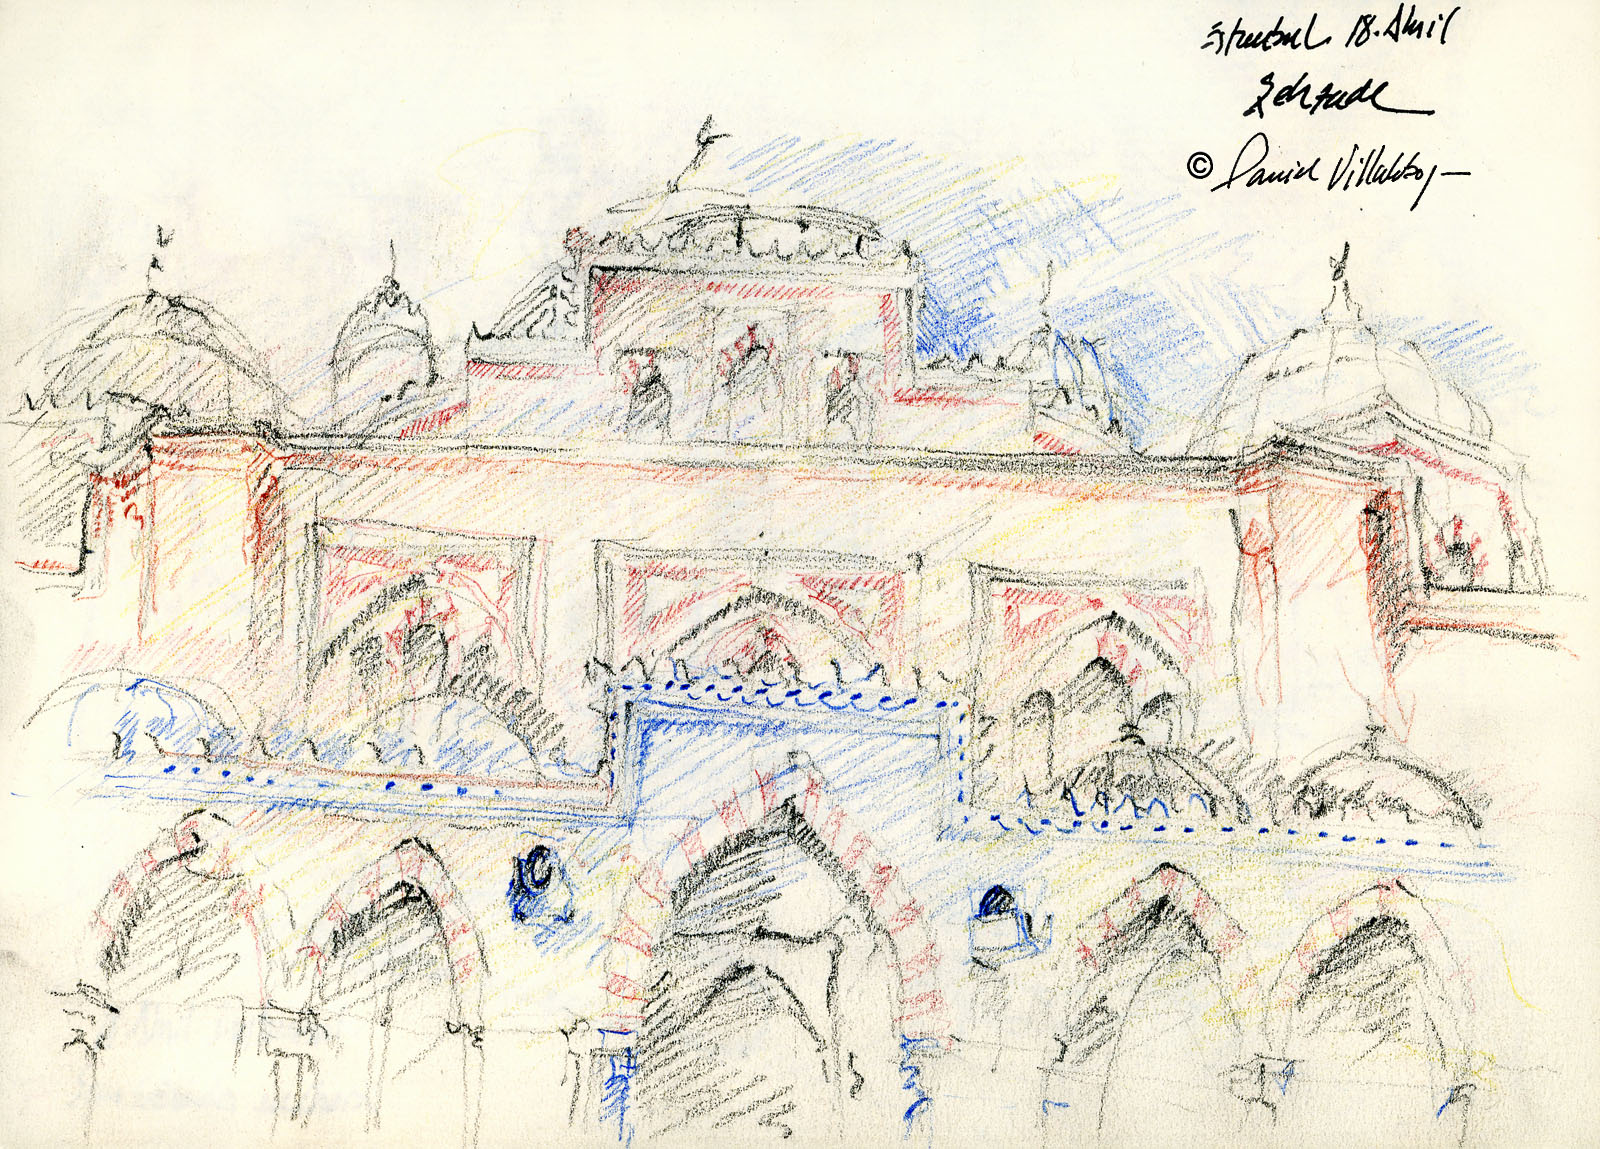 Istanbul 18. Abril
Şehzade
© Daniel Villalobos